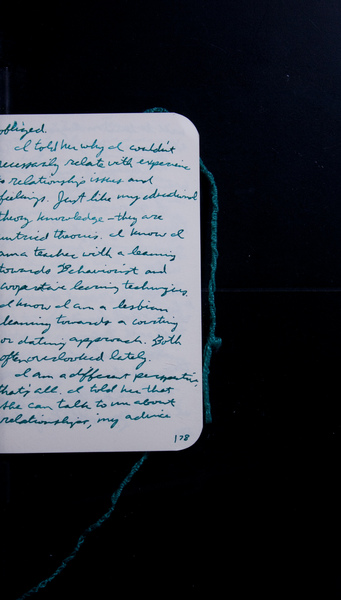 obliged.
I told her why I couldn't
necessarily relate with experience
to relationship issues and
feelings. Just like my educational
theory knowledge - they are
untried theories. I know I
am a teacher with a leaning
towards Behaviorist and
cooperative learning techniques.
I know I am a lesbian
leaning towards a courting
or dating approach. Both
often overlooked lately.
I am a different perspective
that's all. I told her that
she can talk to me about
relationships, my advice
178